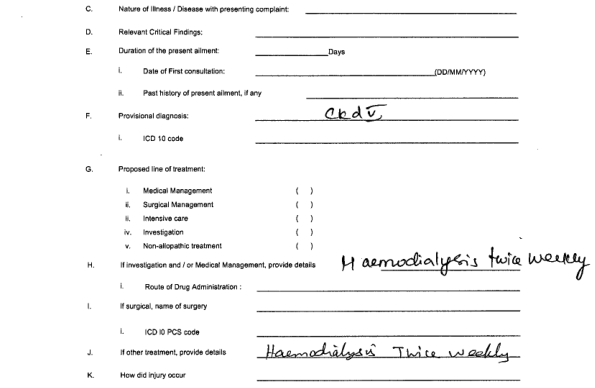 C. Nature of Illness / Disease with presenting complaint:
D. Relevant Critical Findings:
E. Duration of the present ailment: Days
i. Date of First consultation: (DD/MM/YYYY)
ii. Past history of present ailment, if any
F. Provisional diagnosis: Ckd V
i. ICD 10 code
G. Proposed line of treatment:
i. Medical Management ( )
ii. Surgical Management ( )
iii. Intensive care ( )
iv. Investigation ( )
v. Non-allopathic treatment ( )
H. If investigation and / or Medical Management, provide details Haemodialysis twice weekly
i. Route of Drug Administration :
I. If surgical, name of surgery
i. ICD I0 PCS code
J. If other treatment, provide details Haemodialysis Twice weekly
K. How did injury occur